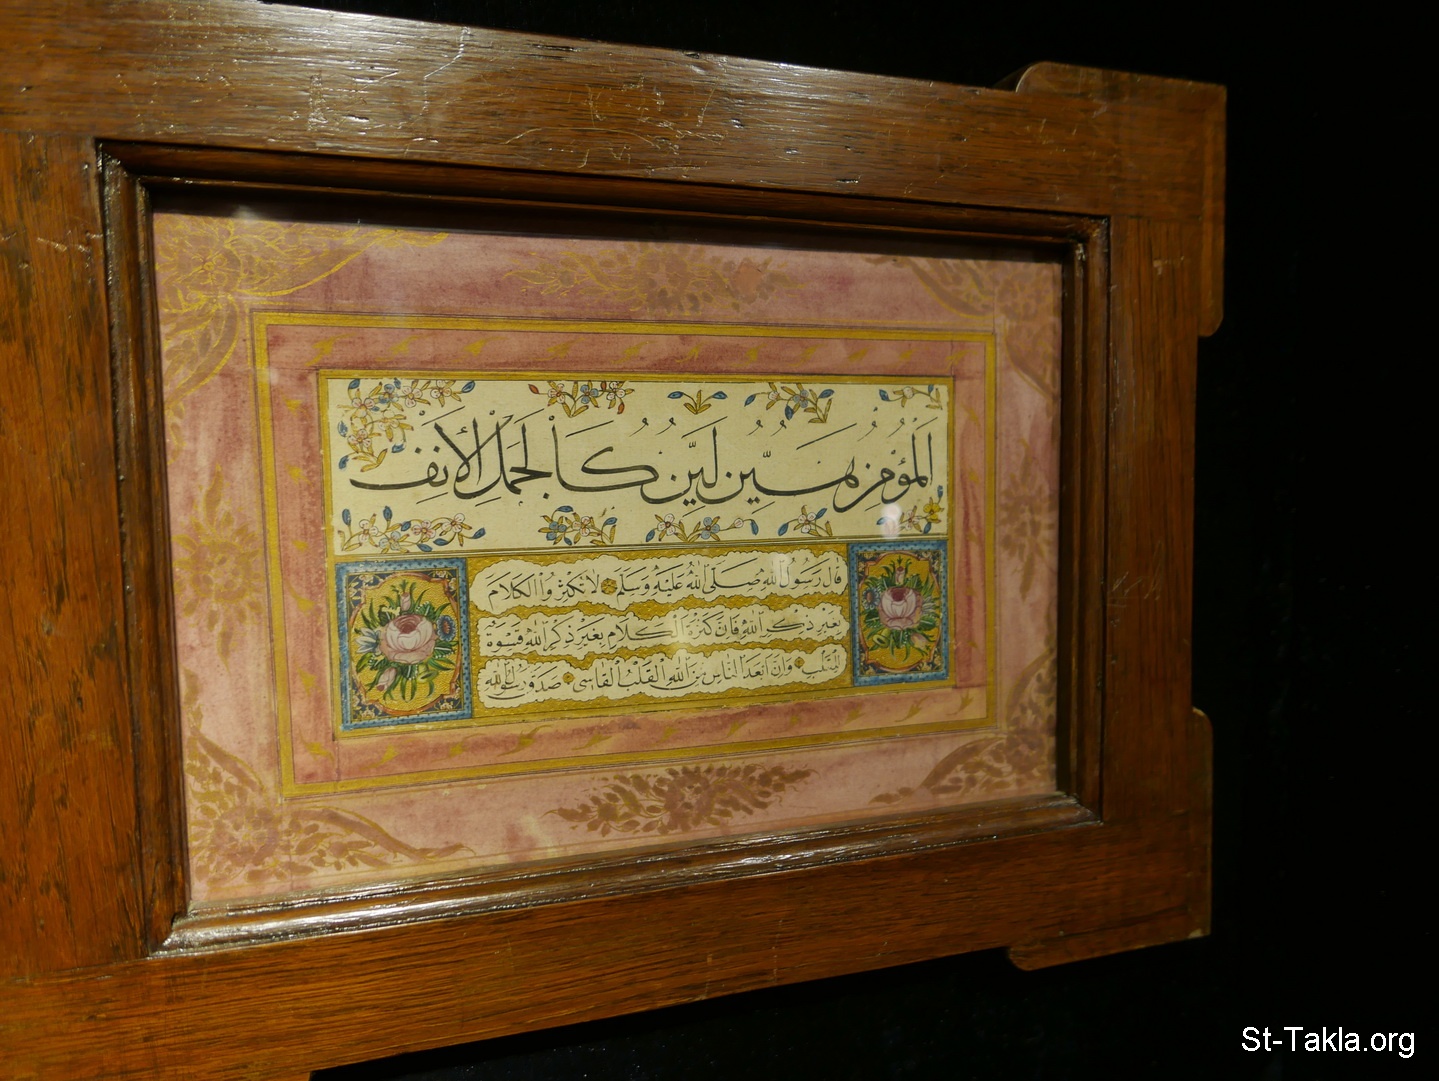 اَلْمُؤْمِنُ هَيِّنٌ لَيِّنٌ كَالْجَمَلِ الْأَنِفْ
قَالَ رَسُولُ اللهِ صَلَّى اللهُ عَلَيْهِ وَسَلَّمَ لَا تُكْثِرُوا الْكَلَامَ
بِغَيْرِ ذِكْرِ اللهِ فَإِنَّ كَثْرَةَ الْكَلَامِ بِغَيْرِ ذِكْرِ اللهِ قَسْوَةٌ
لِلْقَلْبِ وَإِنَّ أَبْعَدَ النَّاسِ مِنَ اللهِ الْقَلْبُ الْقَاسِي صَدَقَ رَسُولُ اللهِ
St-Takla.org